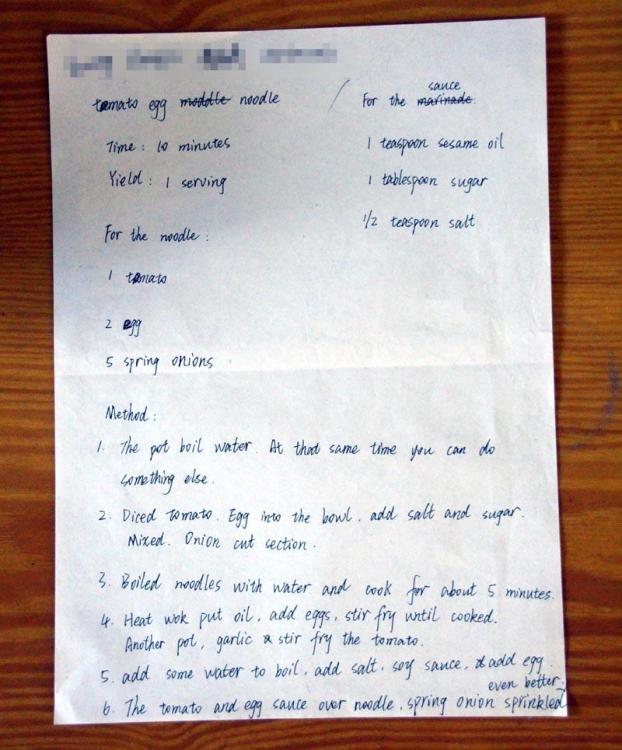 tomato egg noodle
Time : 10 minutes
Yield : 1 serving
For the noodle :
1 tomato
2 egg
5 spring onions
sauce
For the marinade.
1 teaspoon sesame oil
1 tablespoon sugar
1/2 teaspoon salt
Method :
1. The pot boil water. At that same time you can do
something else.
2. Diced tomato. Egg into the bowl, add salt and sugar.
Mixed. Onion cut section.
3. Boiled noodles with water and cook for about 5 minutes.
4. Heat wok put oil, add eggs, stir fry until cooked.
Another pot, garlic & stir fry the tomato.
5. add some water to boil, add salt, soy sauce, add egg.
even better.
6. The tomato and egg sauce over noodle, spring onion sprinkled